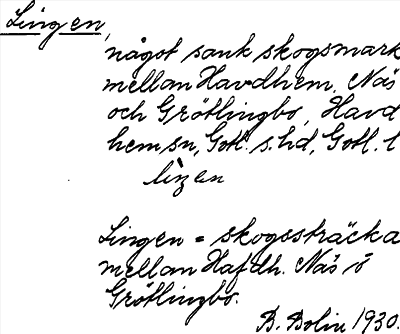 Lingen,
något sank skogsmark
mellan Havdhem, Näs
och Grötlingbo, Havd
hem sn, Gotl. s. hd, Gotl. l
Lingen = skogssträcka
mellan Hafdh. Näs o
Grötlingbo.
B. Bolin 1930.